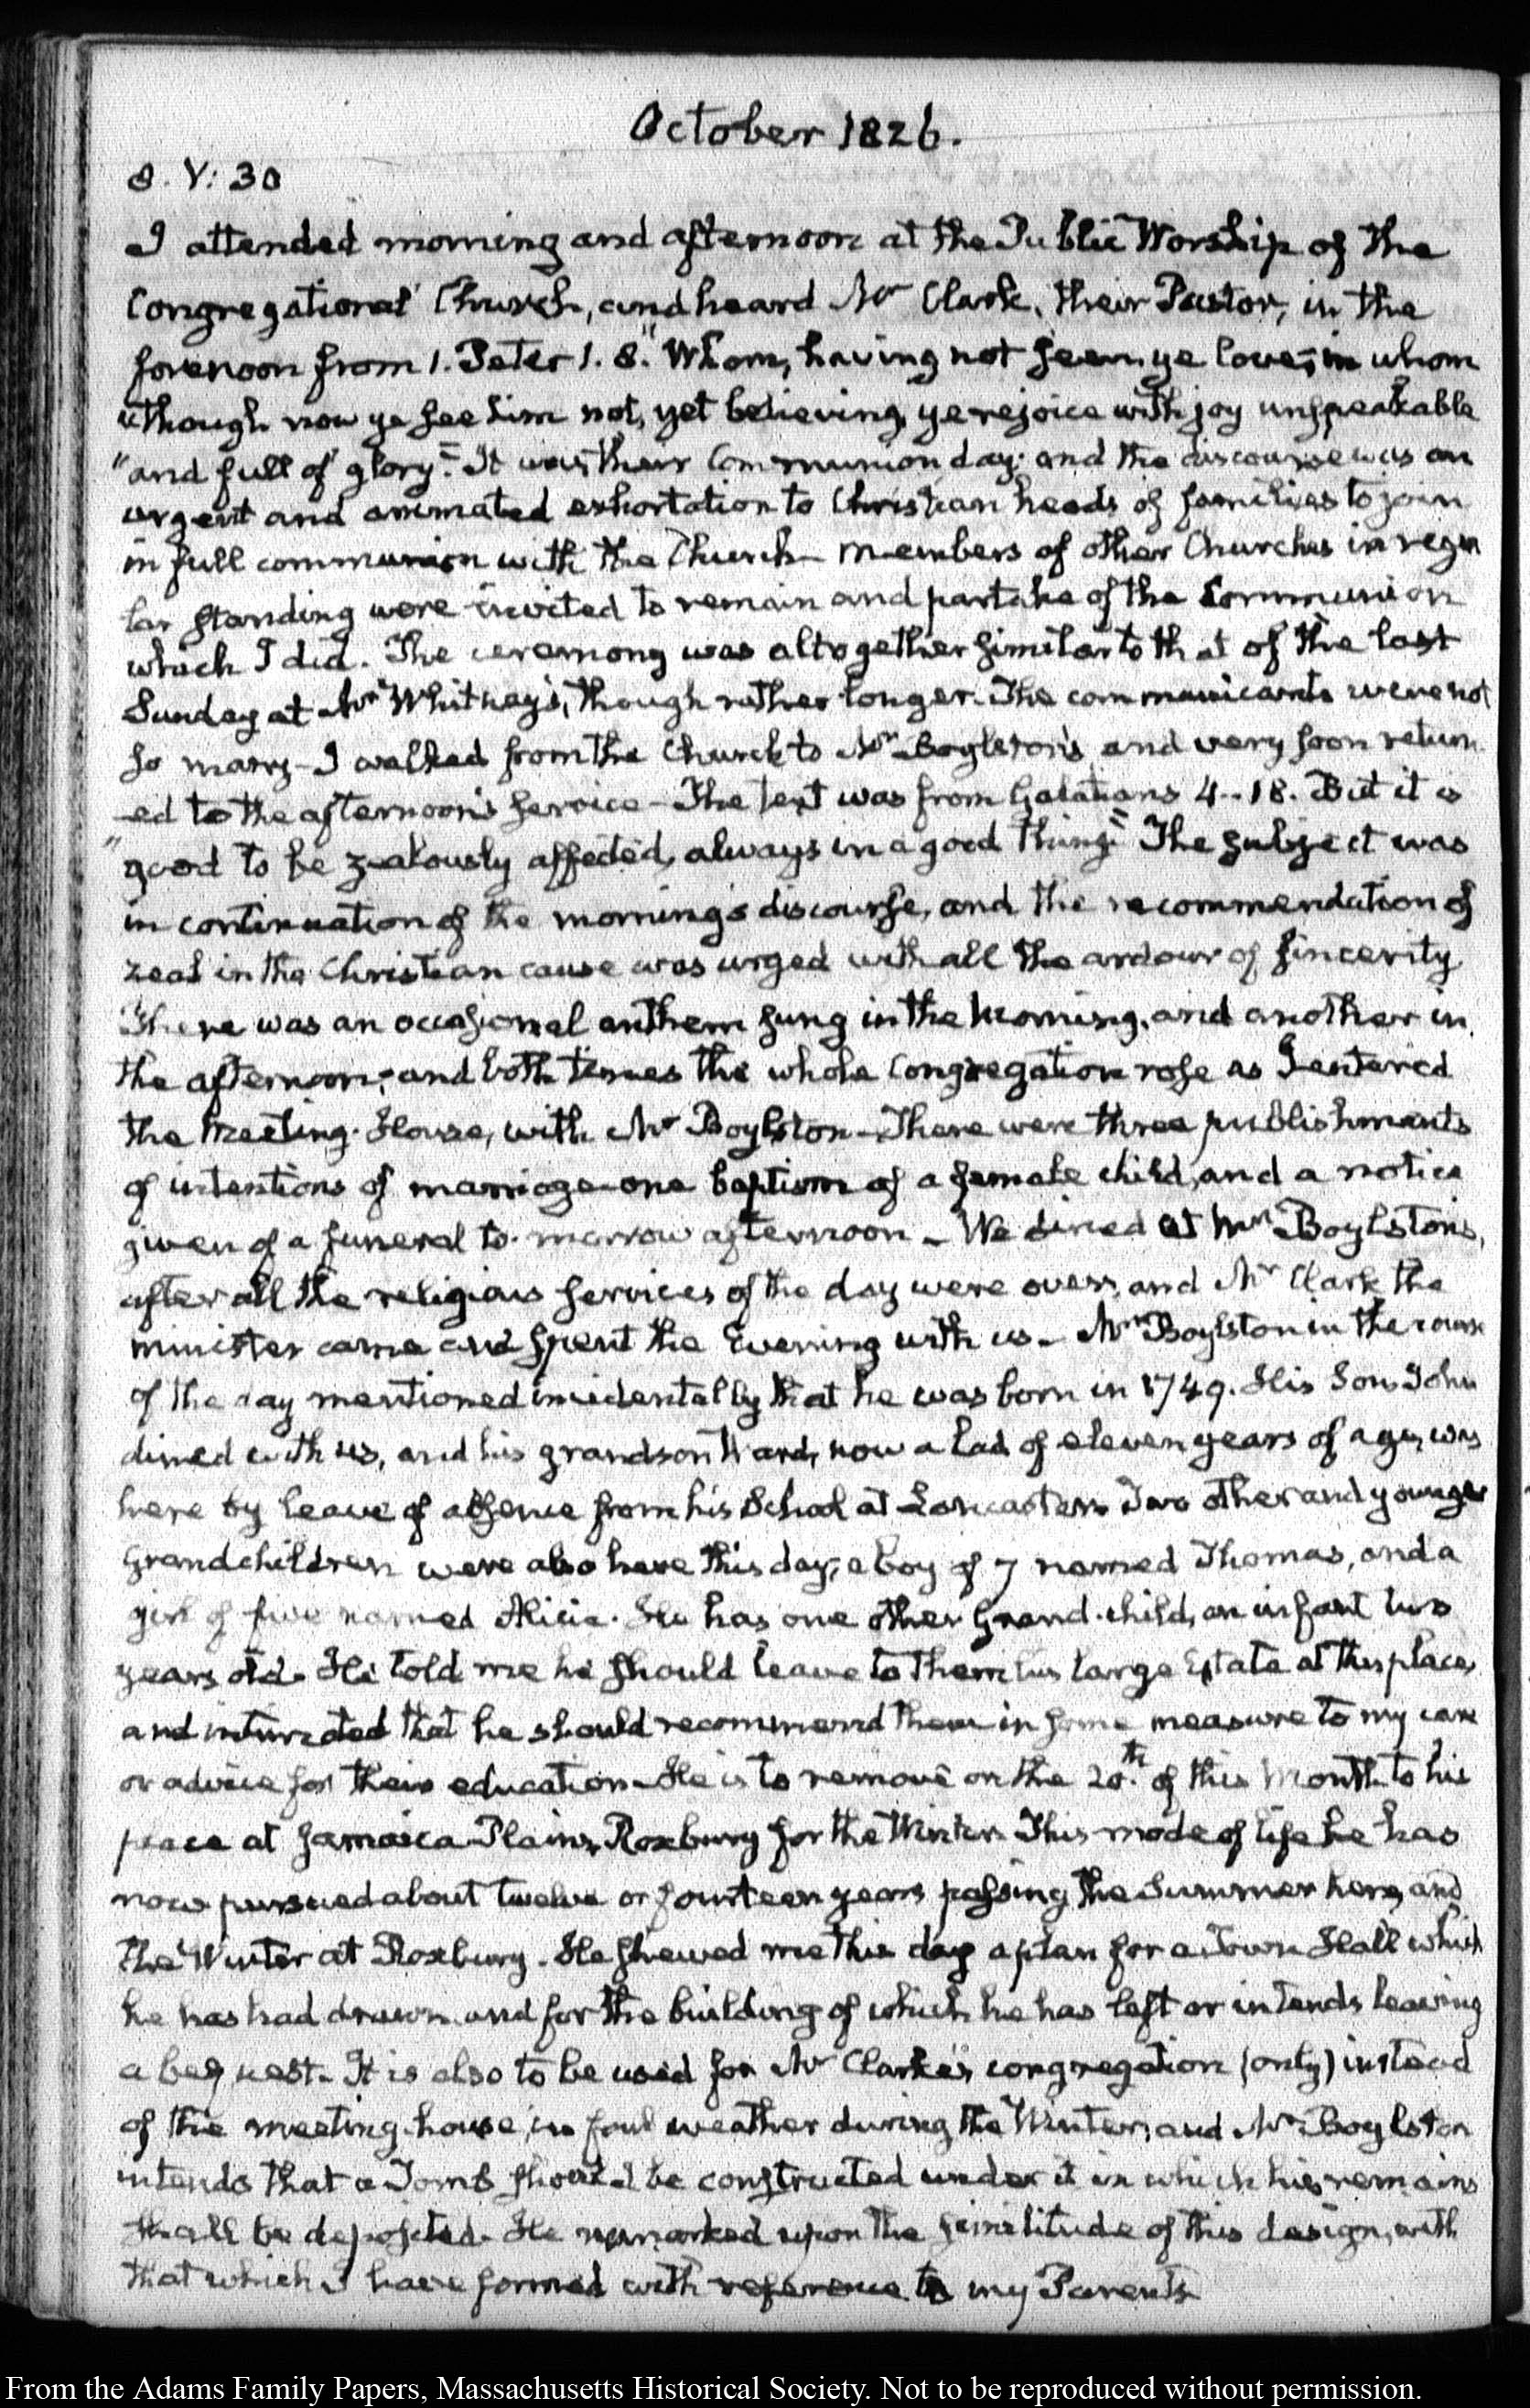 October 1826.
8. V: 30
I attended morning and afternoon at the Public Worship of the
Congregational Church, and heard Mr Clark, their Pastor, in the
forenoon from 1. Peter 1. 8. "Whom, having not seen, ye love; in whom
"though now ye see him not, yet believing, ye rejoice with joy unspeakable
"and full of glory." It was their Communion day: and the discourse was an
urgent and animated exhortation to Christian heads of families to join
in full communion with the Church - Members of other Churches in regu
lar standing were invited to remain and partake of the Communion
which I did. The ceremony was altogether similar to that of the last
Sunday at Mr Whitney's, though rather longer. The communicants were not
so many - I walked from the Church to Mr Boylston's and very soon return
-ed to the afternoon's service - The text was from Galatians 4 - 18. But it is
"good to be zealously affected, always in a good thing." The subject was
in continuation of the morning's discourse, and the recommendation of
zeal in the Christian cause was urged with all the ardour of sincerity
There was an occasional anthem sung in the morning, and another in
the afternoon; and both times the whole Congregation rose as I entered
the Meeting-House, with Mr Boylston - There were three publishments
of intentions of marriage - one baptism of a female child, and a notice
given of a funeral to-morrow afternoon - We dined at Mr Boylston's,
after all the religious services of the day were over, and Mr Clark the
minister came and spent the Evening with us - Mr Boylston in the course
of the day mentioned incidentally that he was born in 1749. His Son John
dined with us, and his grandson Ward, now a lad of eleven years of age, was
here by leave of absence from his School at Lancaster. Two other and younger
Grandchildren were also here this day; a boy of 7 named Thomas, and a
girl of five named Alicia. He has one other Grand-child, an infant two
years old. He told me he should leave to them his large Estate at this place,
and intimated that he should recommend them in some measure to my care
or advice for their education - He is to remove on the 20.th of this Month to his
place at Jamaica Plains, Roxbury for the Winter. This mode of life he has
now pursued about twelve or fourteen years passing the Summer here, and
the Winter at Roxbury. He shewed me this day a plan for a Town Hall which
he has had drawn and for the building of which he has left or intends leaving
a bequest. It is also to be used for Mr Clarke's congregation (only) instead
of the meeting-house, in foul weather during the Winter; and Mr Boylston
intends that a Tomb should be constructed under it in which his remains
shall be deposited. He remarked upon the similitude of this design, with
that which I have formed with reference to my Parents
From the Adams Family Papers, Massachusetts Historical Society. Not to be reproduced without permission.